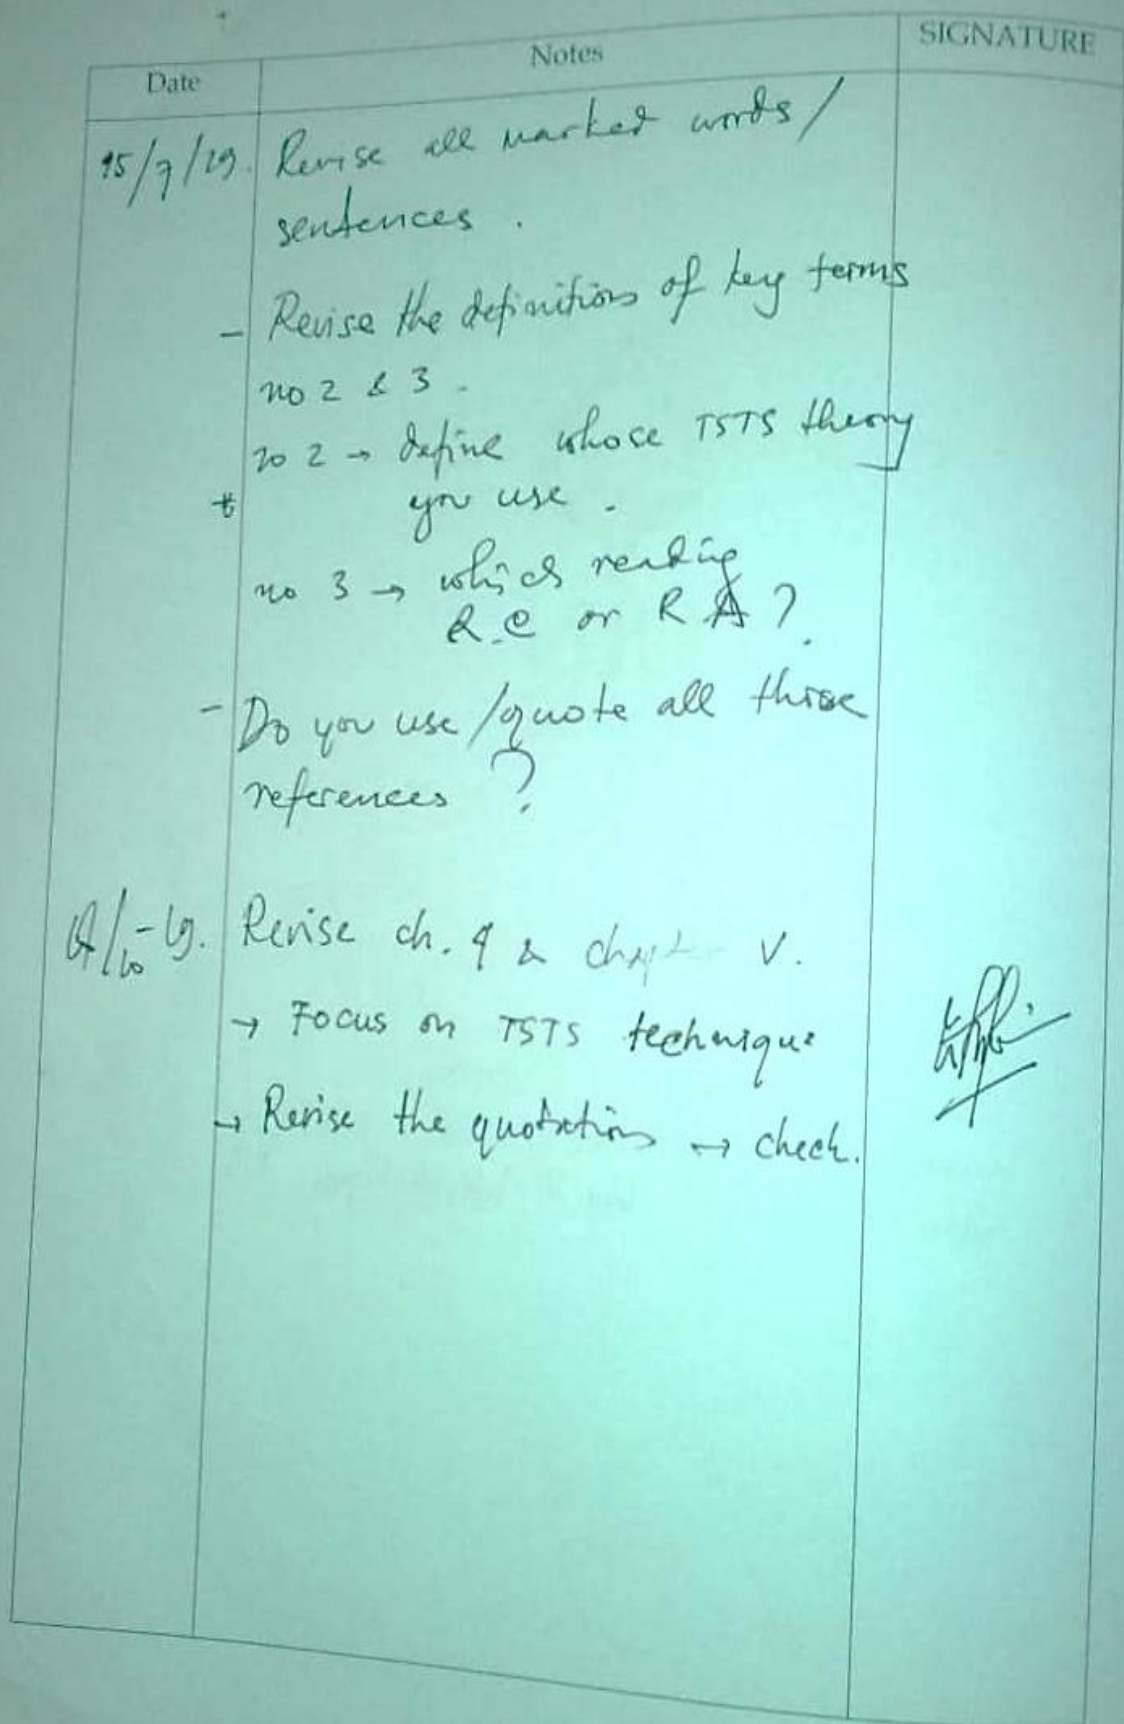 Date Notes SIGNATURE
15/7/19. Revise all marked words/
sentences.
- Revise the definitions of key terms
no 2 & 3.
no 2 → define whose TSTS theory
you use.
no 3 → which reading
R.C or R A?
- Do you use/quote all those
references?
Revise ch. 4 & chapt V.
→ Focus on TSTS technique
→ Revise the quotations → check.